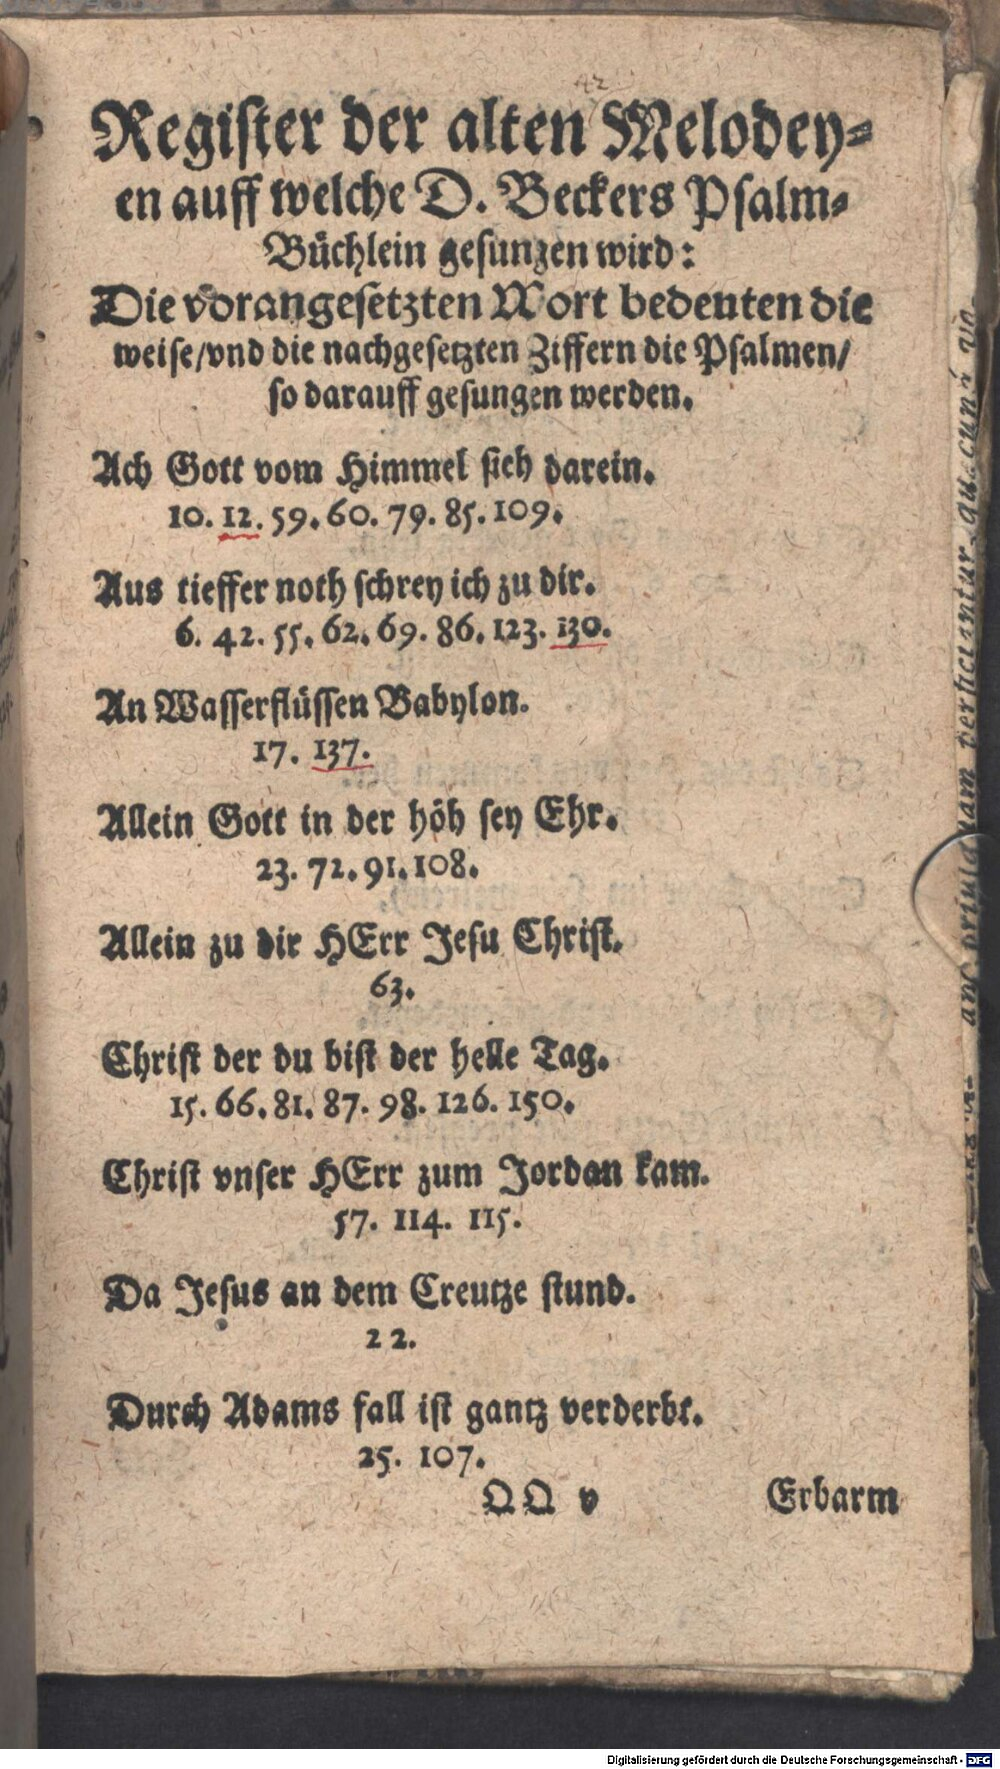 Register der alten Melodey-
en auff welche D. Beckers Psalm-
Büchlein gesunzen wird:
Die vorangesetzten Wort bedeuten die
weise/vnd die nachgesetzten Ziffern die Psalmen/
so darauff gesungen werden.
Ach Gott vom Himmel sieh darein.
10. 12. 59. 60. 79. 85. 109.
Aus tieffer noth schrey ich zu dir.
6. 42. 55. 62. 69. 86. 123. 130.
An Wasserflüssen Babylon.
17. 137.
Allein Gott in der höh sey Ehr.
23. 72. 91. 108.
Allein zu dir HErr Jesu Christ.
63.
Christ der du bist der helle Tag.
15. 66. 81. 87. 98. 126. 150.
Christ vnser HErr zum Jordan kam.
57. 114. 115.
Da Jesus an dem Creutze stund.
22.
Durch Adams fall ist gantz verderbt.
25. 107.
QQ v Erbarm
Digitalisierung gefördert durch die Deutsche Forschungsgemeinschaft - DFG